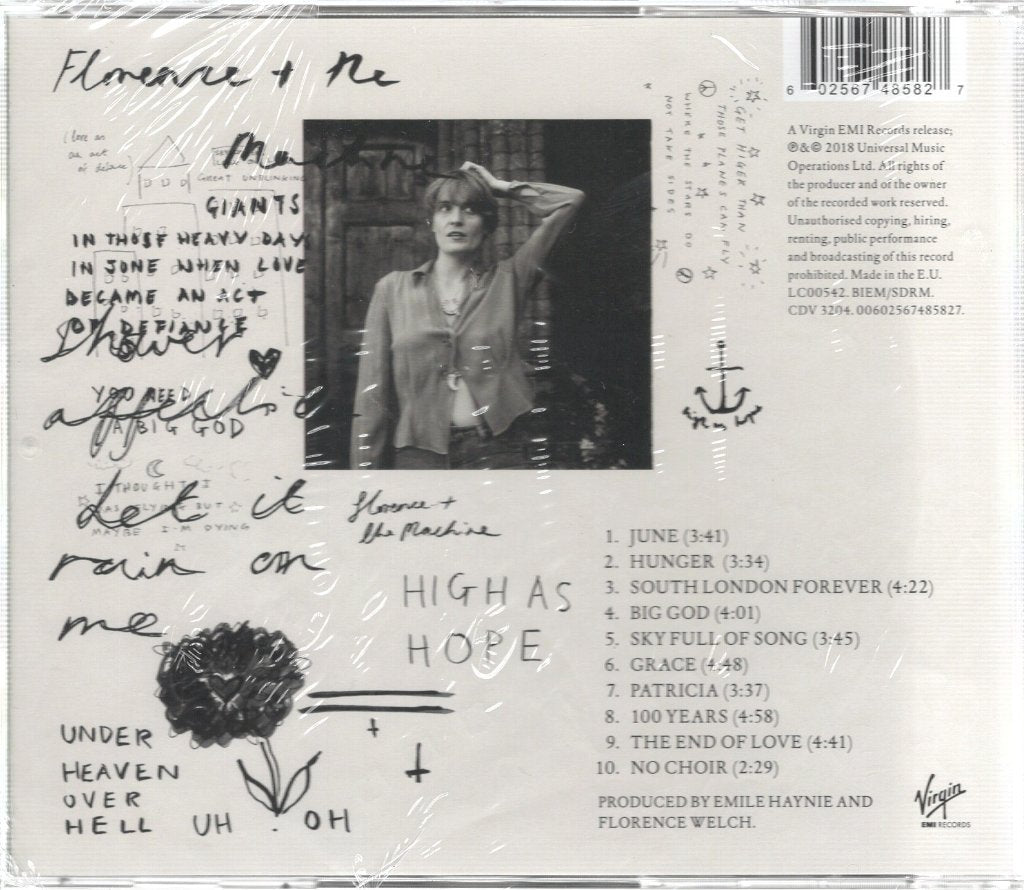 Florence + the
Machine
(love as
an act
of defiance)
GREAT UNBLINKING
GIANTS
IN THOSE HEAVY DAYS
IN JUNE WHEN LOVE
BECAME AN ACT
OF DEFIANCE
Shower
YOU NEED
affection
A BIG GOD
I THOUGHT I
WAS FLYING BUT
Let it
MAYBE I'M DYING
rain on
me
UNDER
HEAVEN
OVER
HELL UH . OH
Florence +
the Machine
HIGH AS
HOPE
GET HIGER THAN
THOSE PLANES CAN FLY
WHERE THE STARS DO
NOT TAKE SIDES
high as hope
6 02567 48582 7
A Virgin EMI Records release;
℗&© 2018 Universal Music
Operations Ltd. All rights of
the producer and of the owner
of the recorded work reserved.
Unauthorised copying, hiring,
renting, public performance
and broadcasting of this record
prohibited. Made in the E.U.
LC00542. BIEM/SDRM.
CDV 3204. 00602567485827.
1. JUNE (3:41)
2. HUNGER (3:34)
3. SOUTH LONDON FOREVER (4:22)
4. BIG GOD (4:01)
5. SKY FULL OF SONG (3:45)
6. GRACE (4:48)
7. PATRICIA (3:37)
8. 100 YEARS (4:58)
9. THE END OF LOVE (4:41)
10. NO CHOIR (2:29)
PRODUCED BY EMILE HAYNIE AND
FLORENCE WELCH.
Virgin
EMI RECORDS